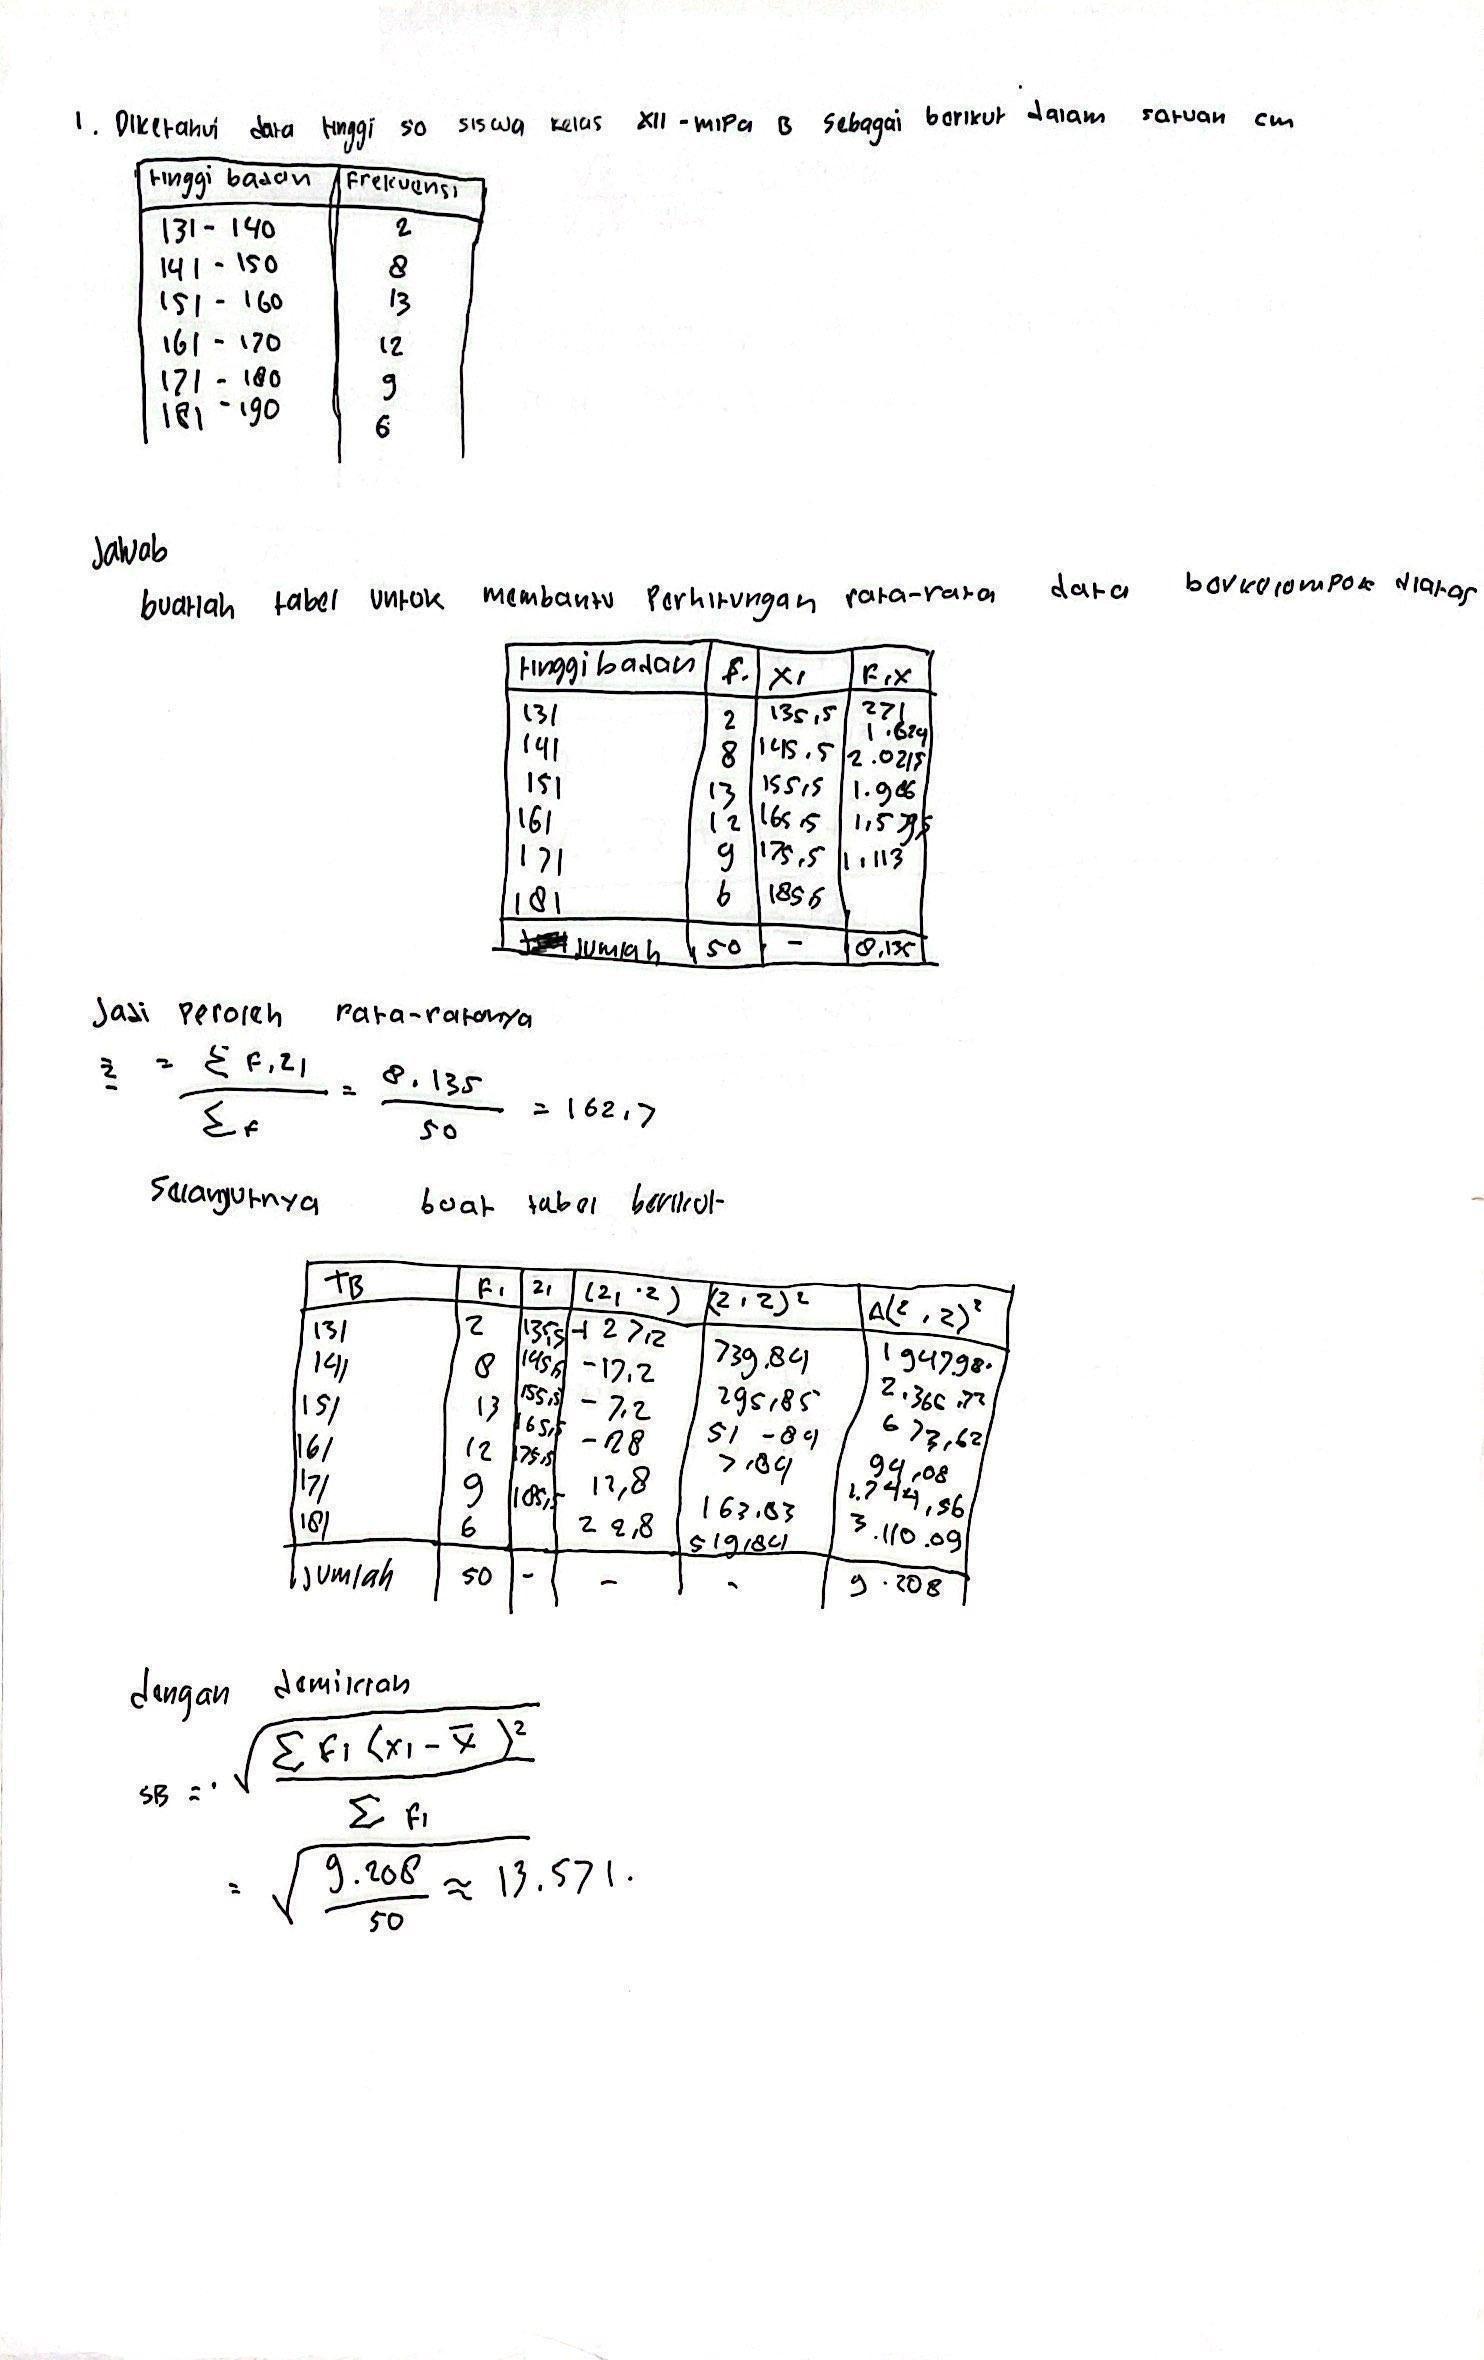 1. Diketahui data tinggi 50 siswa kelas XII - MIPA B sebagai berikut dalam satuan cm
tinggi badan Frekuensi
131 - 140 2
141 - 150 8
151 - 160 13
161 - 170 12
171 - 180 9
181 - 190 6
Jawab
buatlah tabel untuk membantu Perhitungan rata-rata data berkelompok diatas
tinggi badan f. xi Fix
131 2 135,5 271
141 8 145.5 1.624
151 13 155,5 2.0215
161 12 165,5 1.986
171 9 175,5 1,5795
181 6 1855 1,113
Jumlah 50 - 8,135
Jadi Peroleh rata-ratanya
= Σ F,21 / Σ F = 8.135 / 50 = 162,7
Selanjutnya buat tabel berikut
TB Fi 21 (21 . 2) (2 , 2)² (2 , 2)²
131 2 135,5 27,2 739,84 194798.
141 8 1455 -17,2 295,85 2.366,72
151 13 155,5 - 7,2 51 -84 673,62
161 12 165,5 -28 7,84 94,08
171 9 175,5 12,8 163,83 1.744,56
181 6 185,5 22,8 519,84 3.110.09
Jumlah 50 - - - 9.208
dengan demikian
SB = √ Σ Fi (xi - x̄)² / Σ Fi
= √ 9.208 / 50 ≈ 13.571.